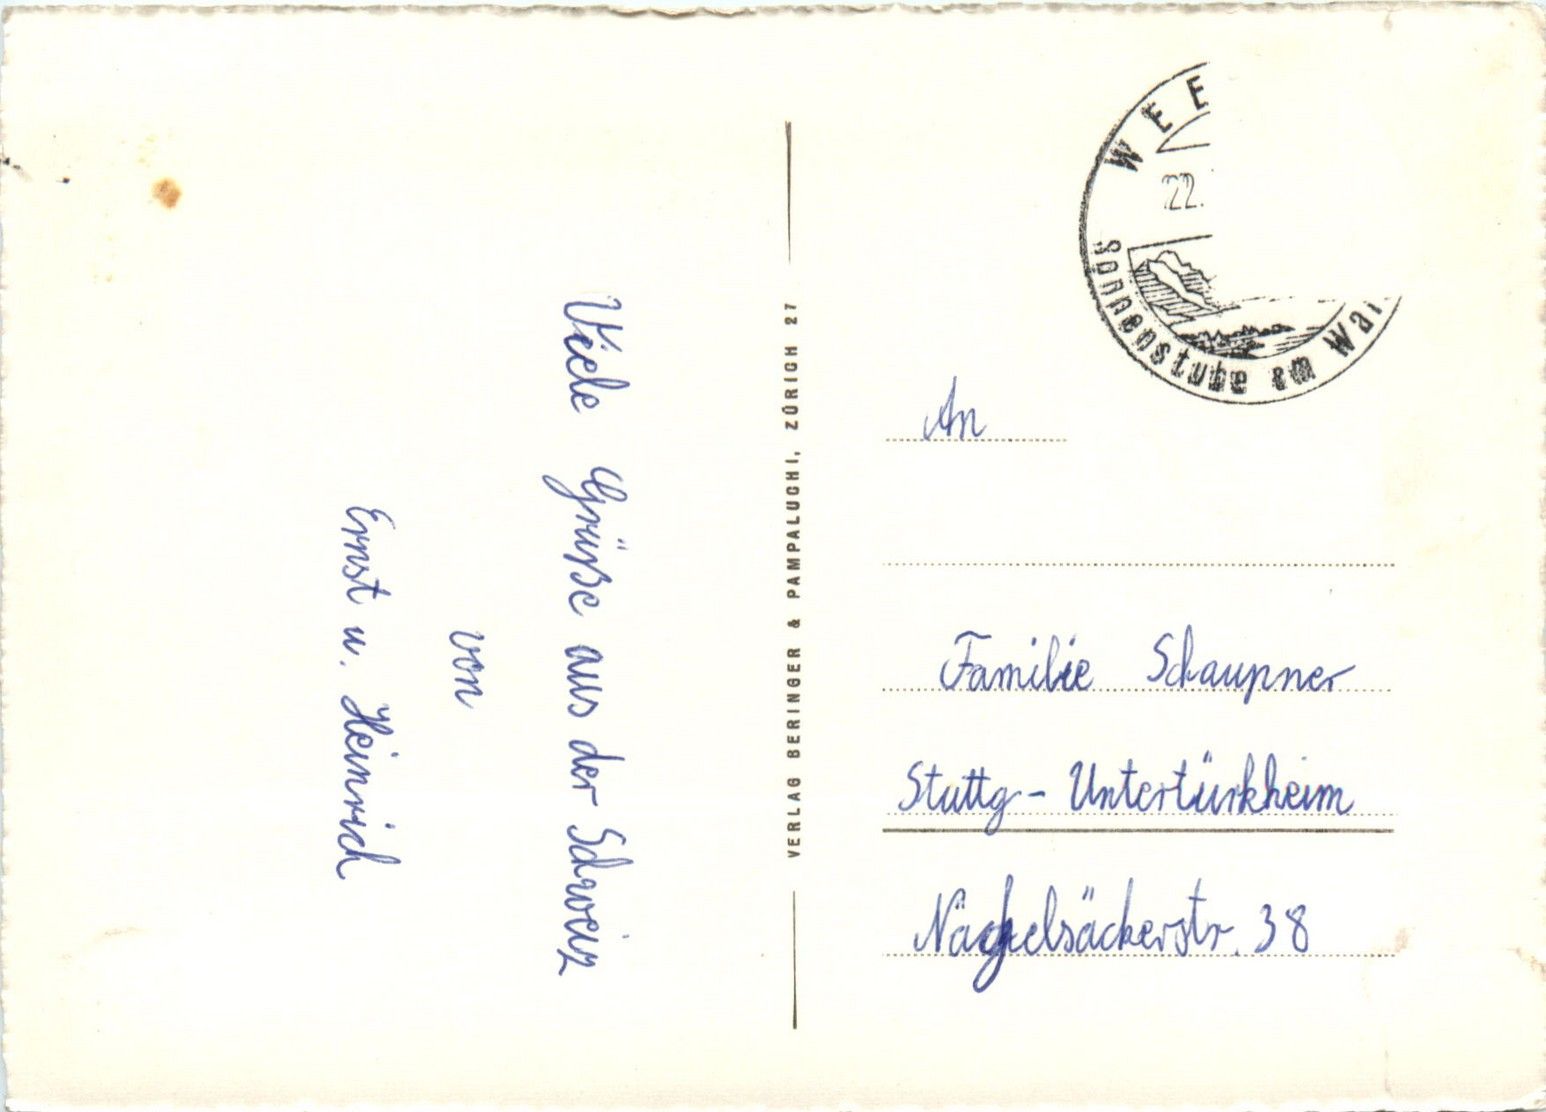 Viele Grüße aus der Schweiz
von
Ernst u. Heinrich
VERLAG BERINGER & PAMPALUCHI, ZÜRICH 27
WEE
22.
Sonnenstube am Wal
An
Familie Schaupner
Stuttg- Untertürkheim
38